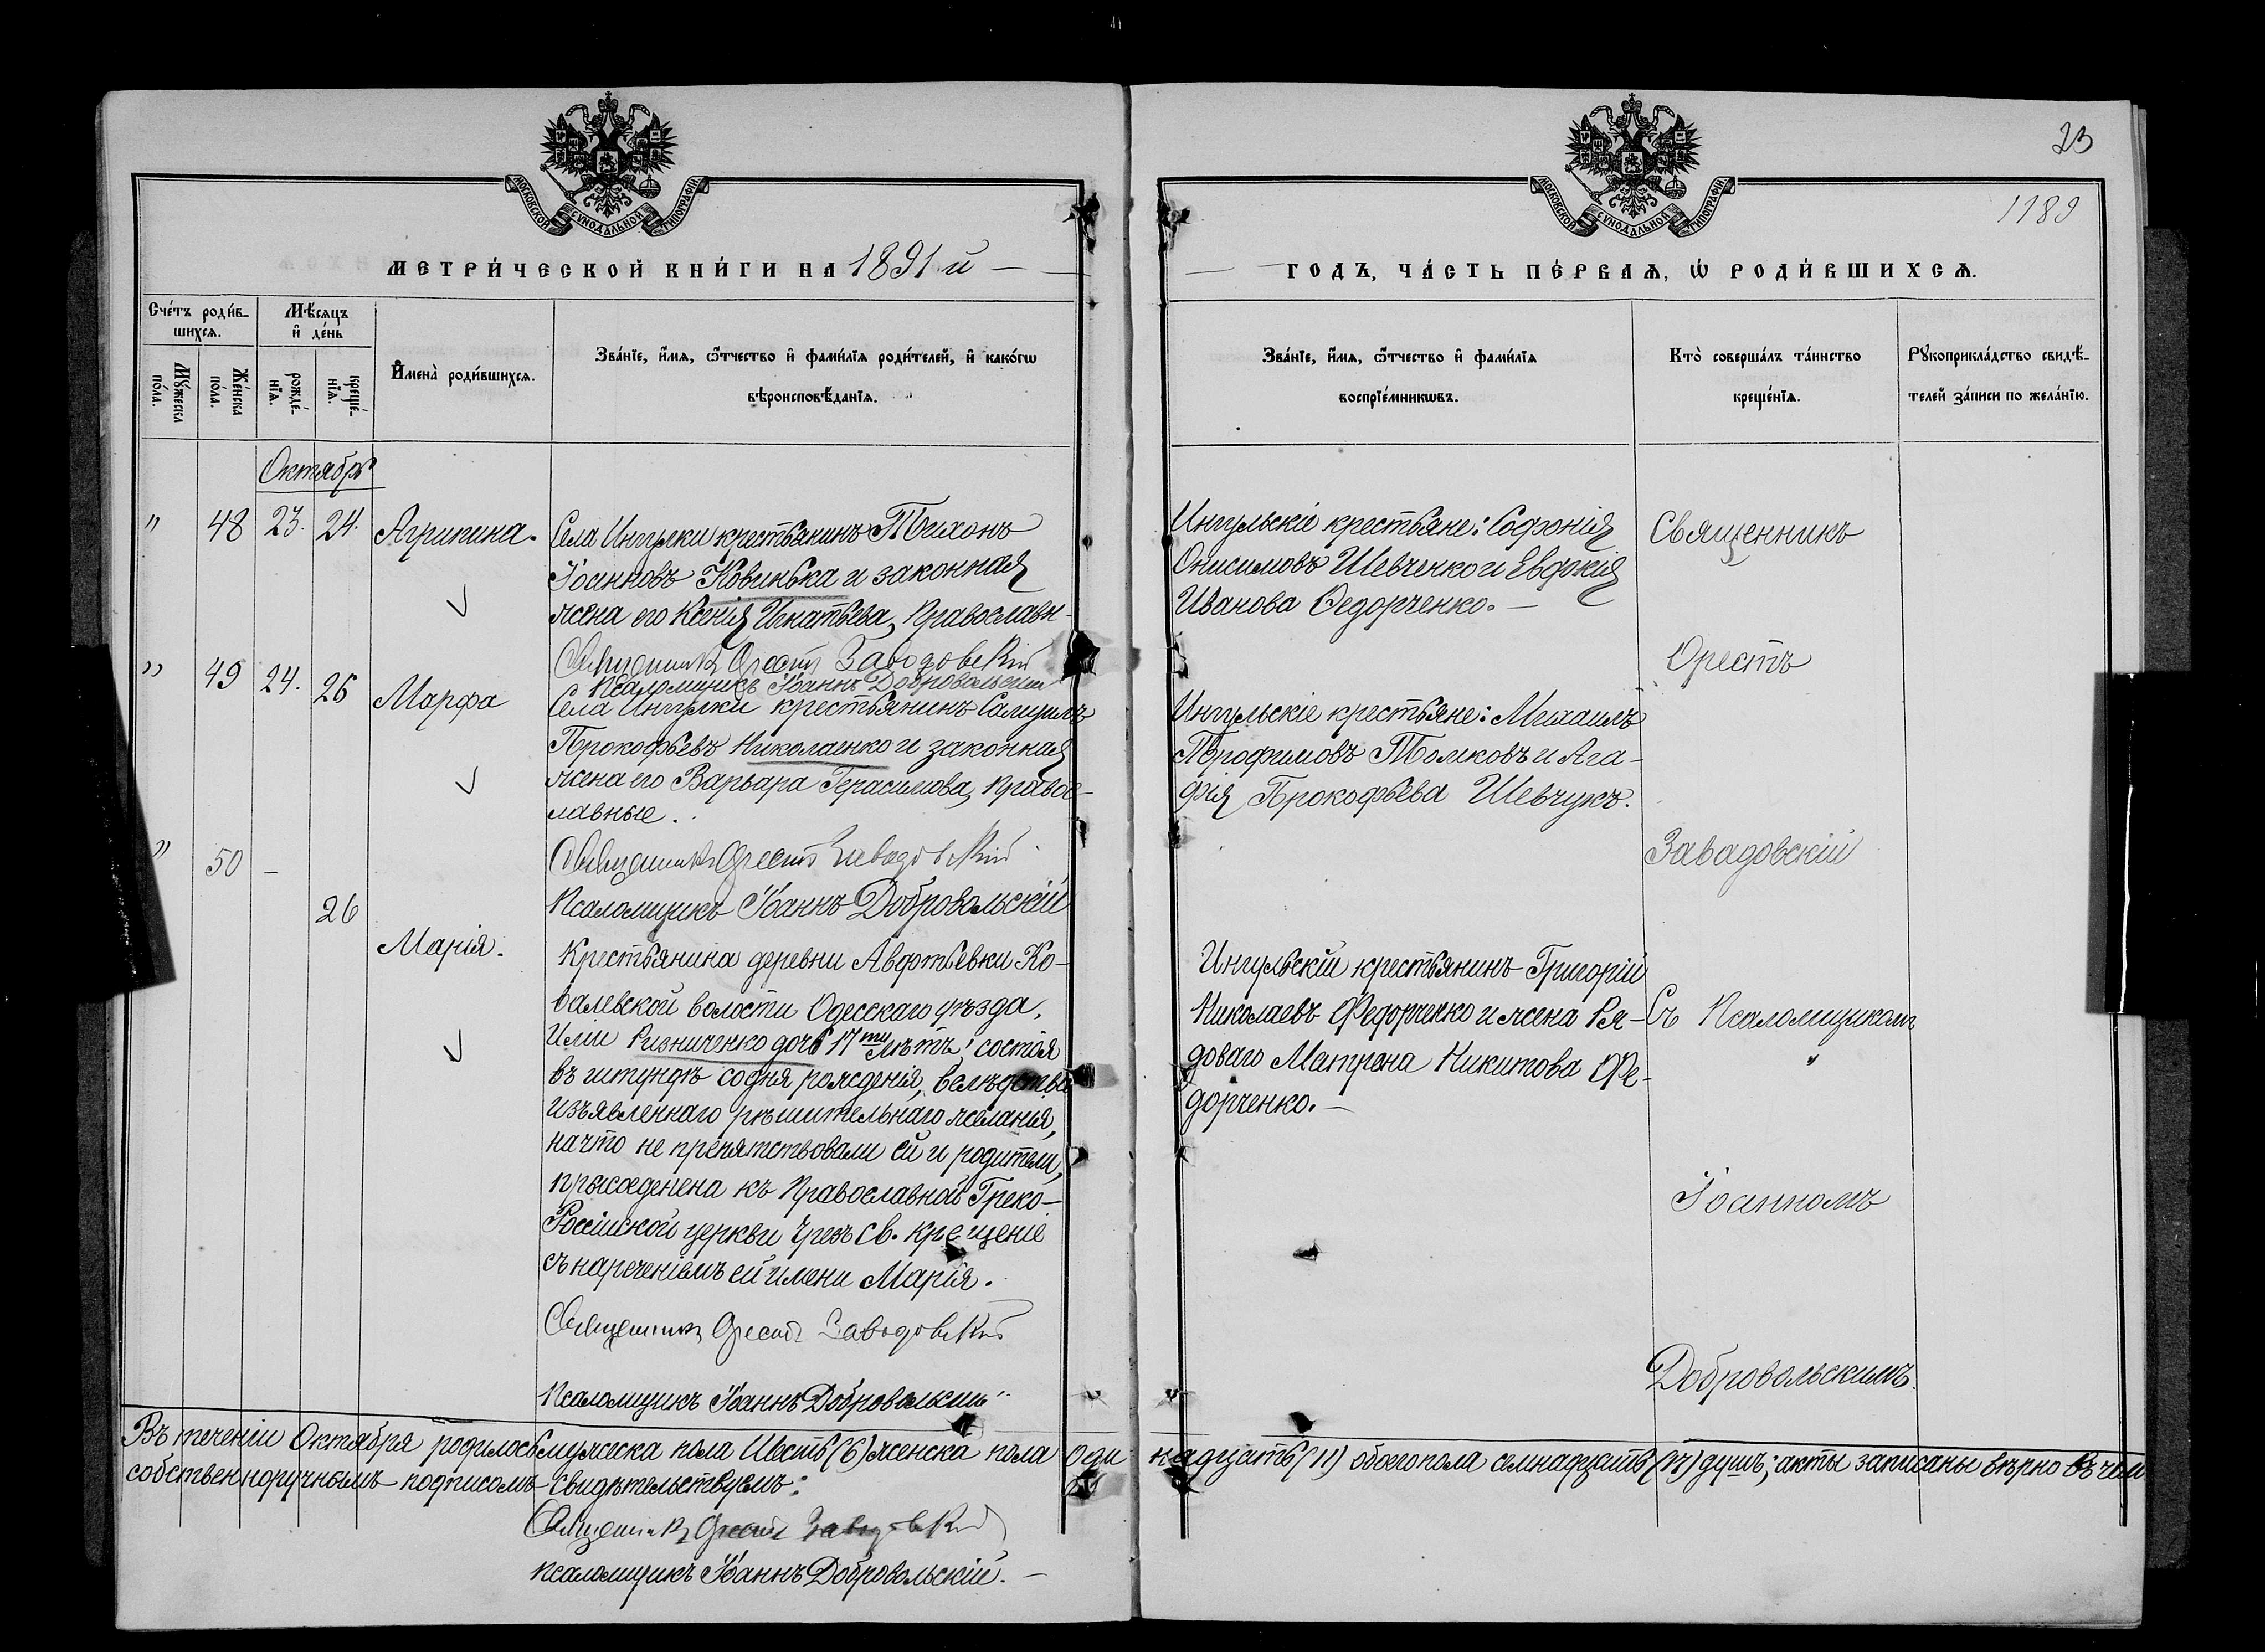 23
1189
МОСКОВСКОЙ СѴНОДАЛЬНОЙ ТИПОГРАФІИ.
МОСКОВСКОЙ СѴНОДАЛЬНОЙ ТИПОГРАФІИ.
МЕТРИ́ЧЕСКОЙ КНИ́ГИ НА 1891 й —
— ГОДЪ, ЧА́СТЬ ПЕ́РВАѦ, Ѡ РОДИ́ВШИХСѦ.
Сче́тъ роди́в-
шихсѧ.
Мѣ́сѧцъ
и де́нь
Мꙋ́жеска
по́ла.
Же́нска
по́ла.
рожде́-
нїѧ.
креще́-
нїѧ.
Имена̀ роди́вшихсѧ.
Зва́нїе, и́мѧ, ѻ́тчество и фами́лїѧ роди́телей, и како́гѡ
вѣроисповѣ́данїѧ.
Зва́нїе, и́мѧ, ѻ́тчество и фами́лїѧ
воспрїе́мникѡвъ.
Кто̀ соверша́лъ та́инство
креще́нїѧ.
Рꙋкоприкла́дство свидѣ́-
телей за́писи по жела́нїю.
Октябрь
" 48 23. 24. Агрипина.
Села Ингулки крестьянинъ Тихонъ
Іоанновъ Ковинька и законная
жена его Ксенія Игнатьева, Православн-
Священникъ Орестъ Заводовскій
Псаломщикъ Іоаннъ Добровольскій
Ингульскіе крестьяне: Софонія
Онисимовъ Шевченко и Евдокія
Иванова Ѳедорченко. —
Священникъ
Орестъ
" 49 24. 26 Марфа
Села Ингулки крестьянинъ Самуилъ
Прокофьевъ Николаенко и законная
жена его Варвара Герасимова, Правос-
лавные.
Священникъ Орестъ Заводовскій
Псаломщикъ Іоаннъ Добровольскій
Ингульскіе крестьяне: Михаилъ
Трофимовъ Толмковъ и Ага-
фія Прокофьева Шевчукъ.
Завадовскій
" 50 — 26 Марія.
Крестьянина деревни Авдотьевки Ко-
валевской волости Одесскаго уѣзда,
Иліи Ризниченко дочь 17ти лѣтъ, состоя
въ штундѣ со дня рожденія, вслѣдствіе
изъявленнаго рѣшительнаго желанія,
на что не препятствовали ей и родители,
присоединена къ Православной Греко-
Россійской церкви чрезъ св. крещеніе
съ нареченіемъ ей имени Марія.
Священникъ Орестъ Заводовскій
Псаломщикъ Іоаннъ Добровольскій
Ингульскій крестьянинъ Григорій
Николаевъ Федорченко и жена Ря-
доваго Матрена Никитова Фе-
дорченко. —
Съ Псаломщикомъ
"
Іоанномъ
Добровольскимъ.
Въ теченіи Октября родилось мужеска пола Шесть (6) женска пола Оди надцать (11) обоего пола семнадцать (17) душъ; акты записаны вѣрно въ чемъ
собственноручнымъ подписомъ свидѣтельствуемъ:
Священникъ Орестъ Заводовскій
Псаломщикъ Іоаннъ Добровольскій. —